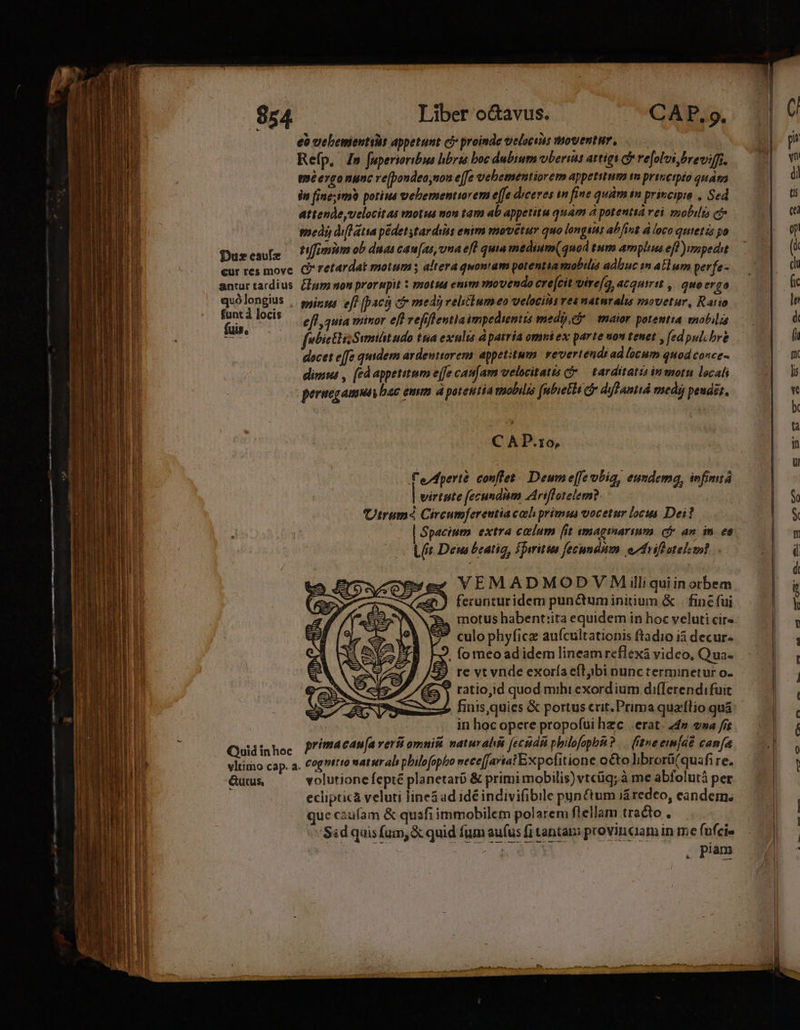 854 Liber octauus. CAP. 9.
eò vehementiùs appetunt & proinde velociùs moventur.
Resp. In superioribus libris hoc dubium vberiùs attigi & resolvi, breviss.
mè ergo nunc respondeo, non esse vehementiorem appetitum in principio quàm
in fine; imò potius vehementiorem esse diceres in fine quàm in principio. Sed
attende, velocitas motus non tam ab appetitu quàm à potentiâ rei mobilis &
medij distãtia pẽdet; tardiùs enim movẽtur quo longiùs absint à loco quietis po
tissimùm ob duas causas, vna est quia medium (quod tum amplius est) impedit
& retardat motum; altera quoniam potentia mobilis adhuc in actum perfe-
ctum non prorupit: motus enim movendo crescit viresq, acquirit, quo ergo
minus est spacij & medij relictum eo velociùs res naturalis movetur, Ratio
est, quia minor est resistentia impedientis medij, & maior potentia mobilis
subiecti; Similitudo tua exulis à patria omni ex parte non tenet, sed pulchrè
docet esse quidem ardentiorem appetitum revertendi ad locum quod conce-
dimus, sed appetitum esse causam velocitatis & tarditatis in motu locali
pernegamus, hac enim à potentia mobilis subiecti & distantiâ medij pendet.
Duæ causæ
cur res move
antur tardiùs
quò longius
sunt à locis
suis.
CAP. 10,
Se Aperté constet Deum esse vbiq, eundemq, infinitâ
virtute secundùm Aristotelem?
Utrum Circumferentia cæli primus vocetur locus Dei?
Spacium extra cælum sit imaginarium & an in eo
sit Deus beatiq, spiritus secundùm Aristotelem?
QVEMADMODVM illi qui in orbem
feruntur idem punctum initium & finẽ sui
motus habent: ita equidem in hoc veluti cir-
culo physicæ auscultationis stadio iã decur-
so meo ad idem lineam reflexã video, Qua-
re vt vnde exorsa est, ibi nunc terminetur o-
ratio, id quod mihi exordium disserendi fuit
finis, quies & portus erit. Prima quæstio quã
in hoc opere proposui hæc erat: An vna sit
prima causa verũ omniũ naturaliũ secũdũ philosophũ? sitne eiusdẽ causa
cognitio naturali philosopho necessaria? Expositione octo librorũ (quasi re-
volutione septẽ planetarũ & primi mobilis) vtcũq; à me absolutâ per
eclipticâ veluti lineã ad idẽ indivisibile punctum iã redeo, eandem-
que causam & quasi immobilem polarem stellam tracto.
Sed quis sum, & quid sum ausus si tantam provinciam in me susci-
Quid in hoc
vltimo cap. a-
cturus,
piam